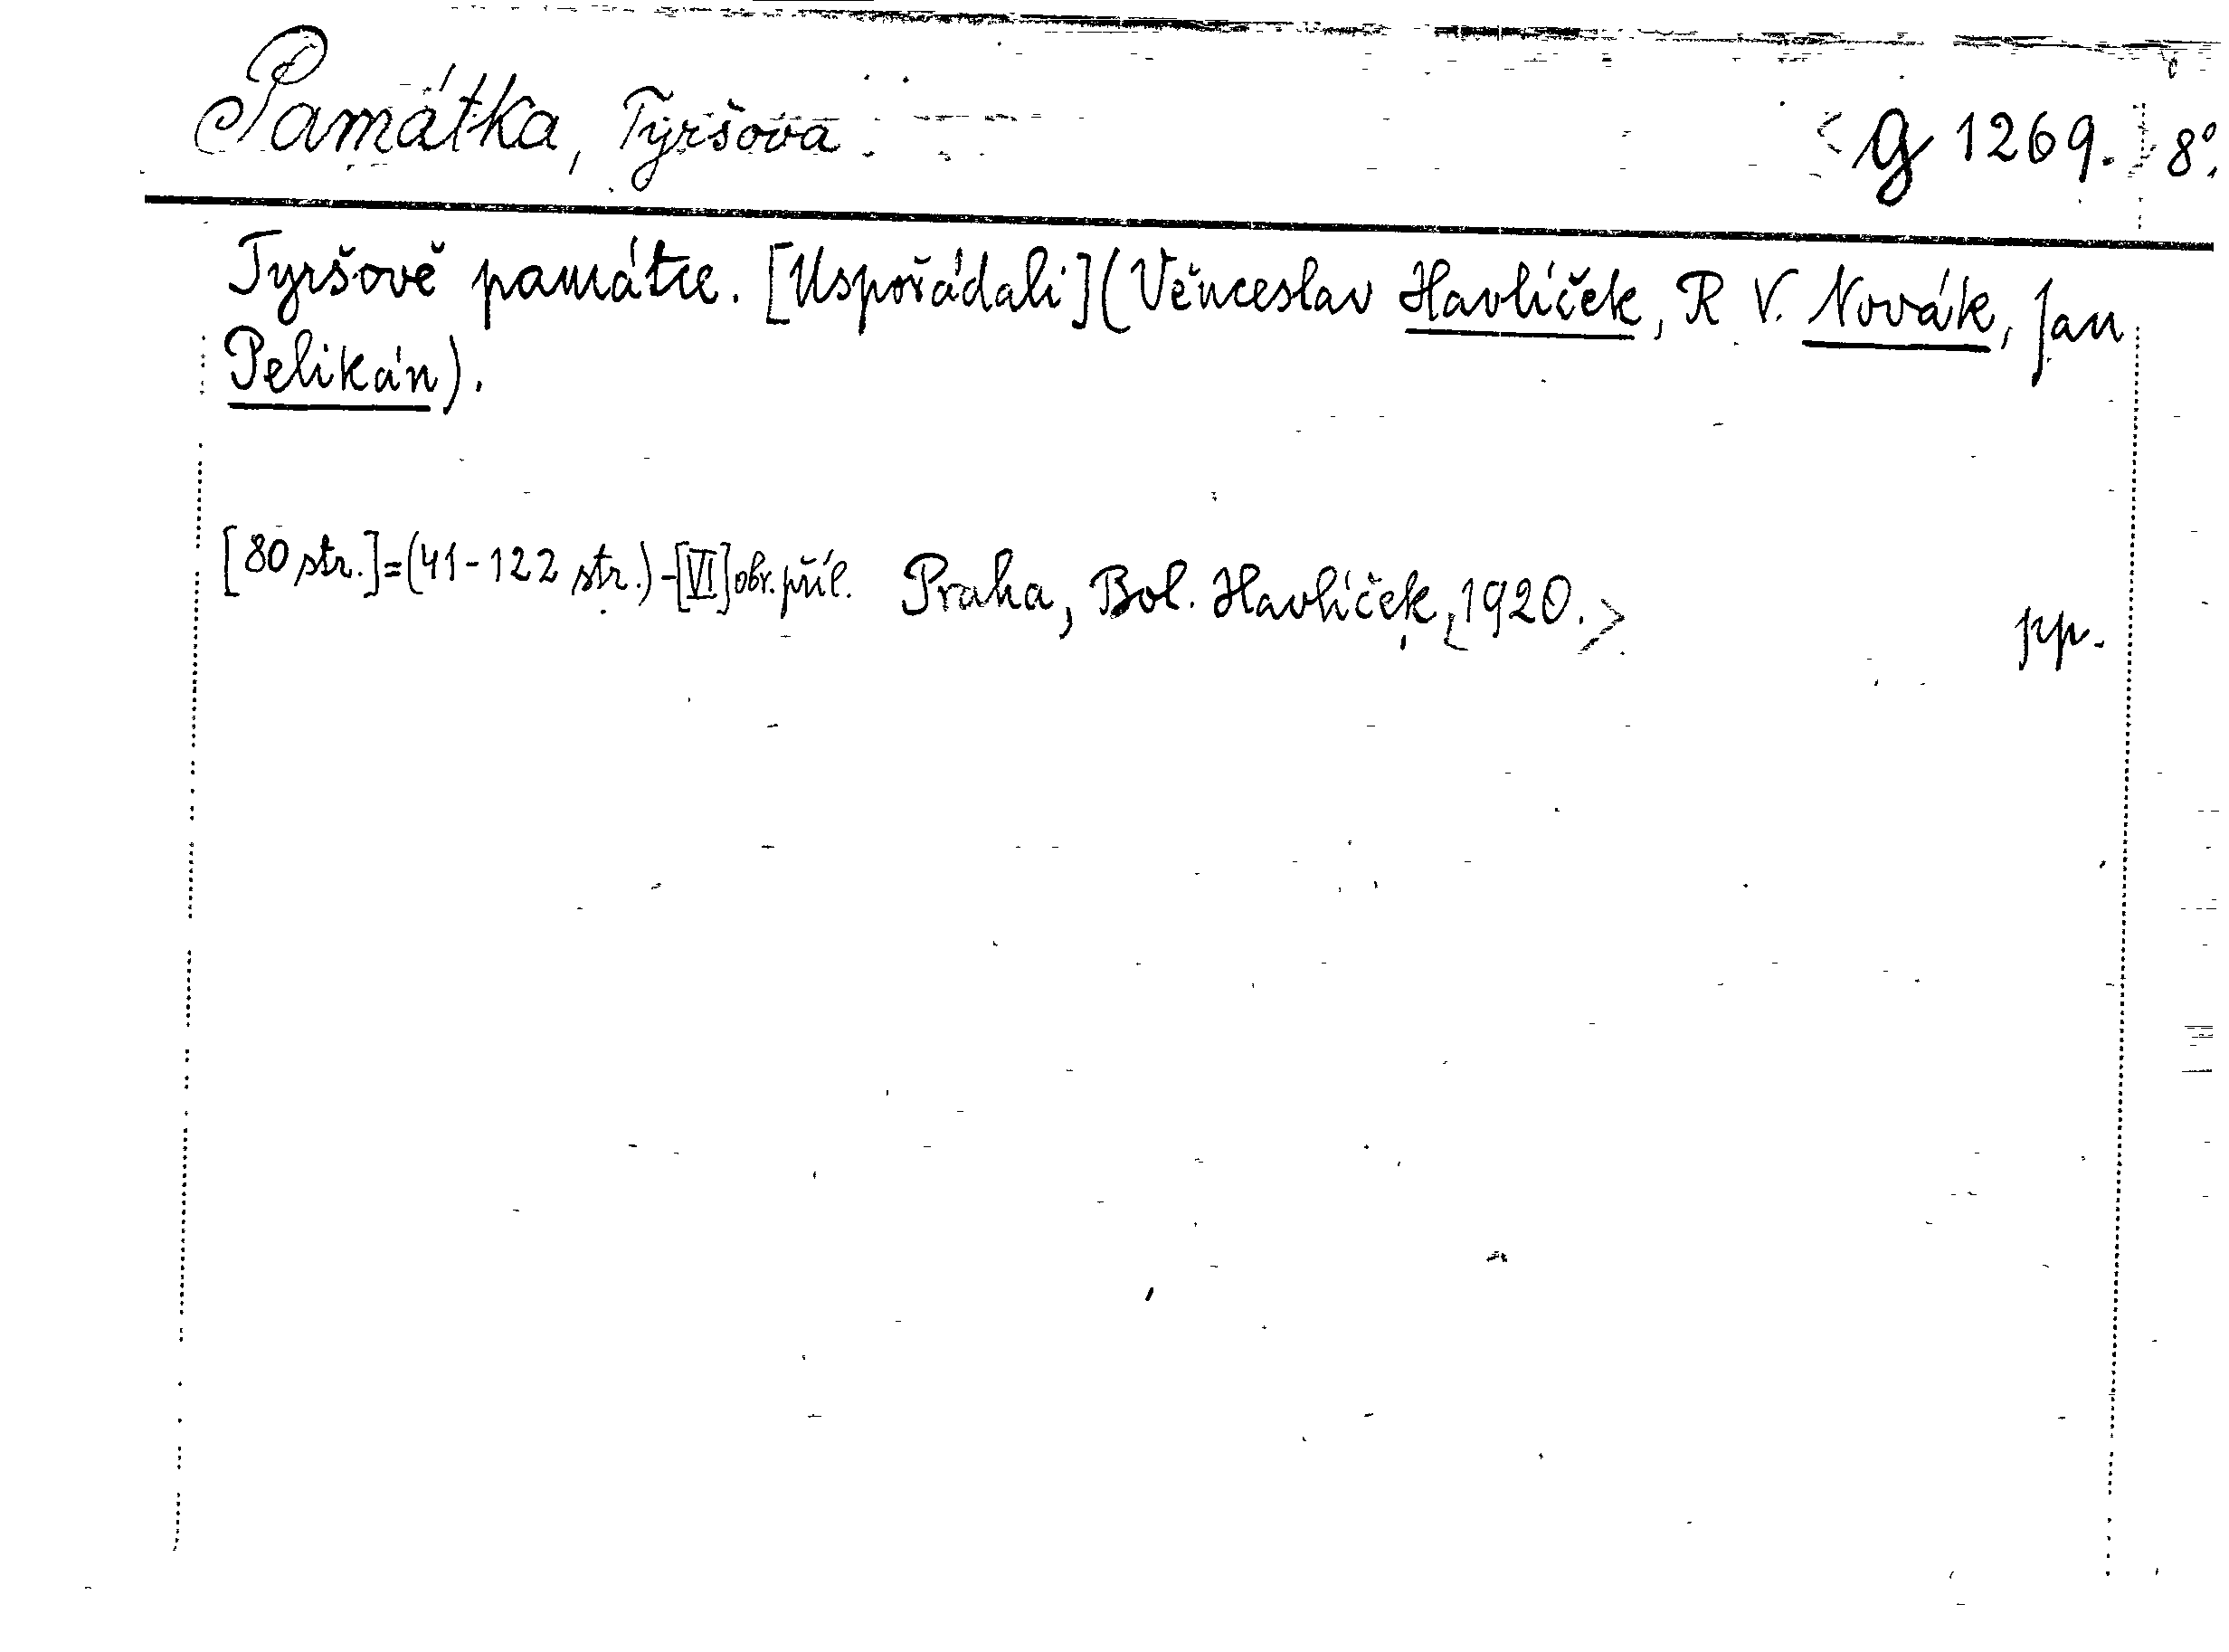 Památka, Tyršova <g 1269.> 8°.
Tyršově památce. [Uspořádali] (Věnceslav Havlíček, R V. Novák, Jan
Pelikán).
[80 str.]=(41-122 str.)-[VI] obr. příl. Praha, Bol. Havlíček, <1920.> pp.